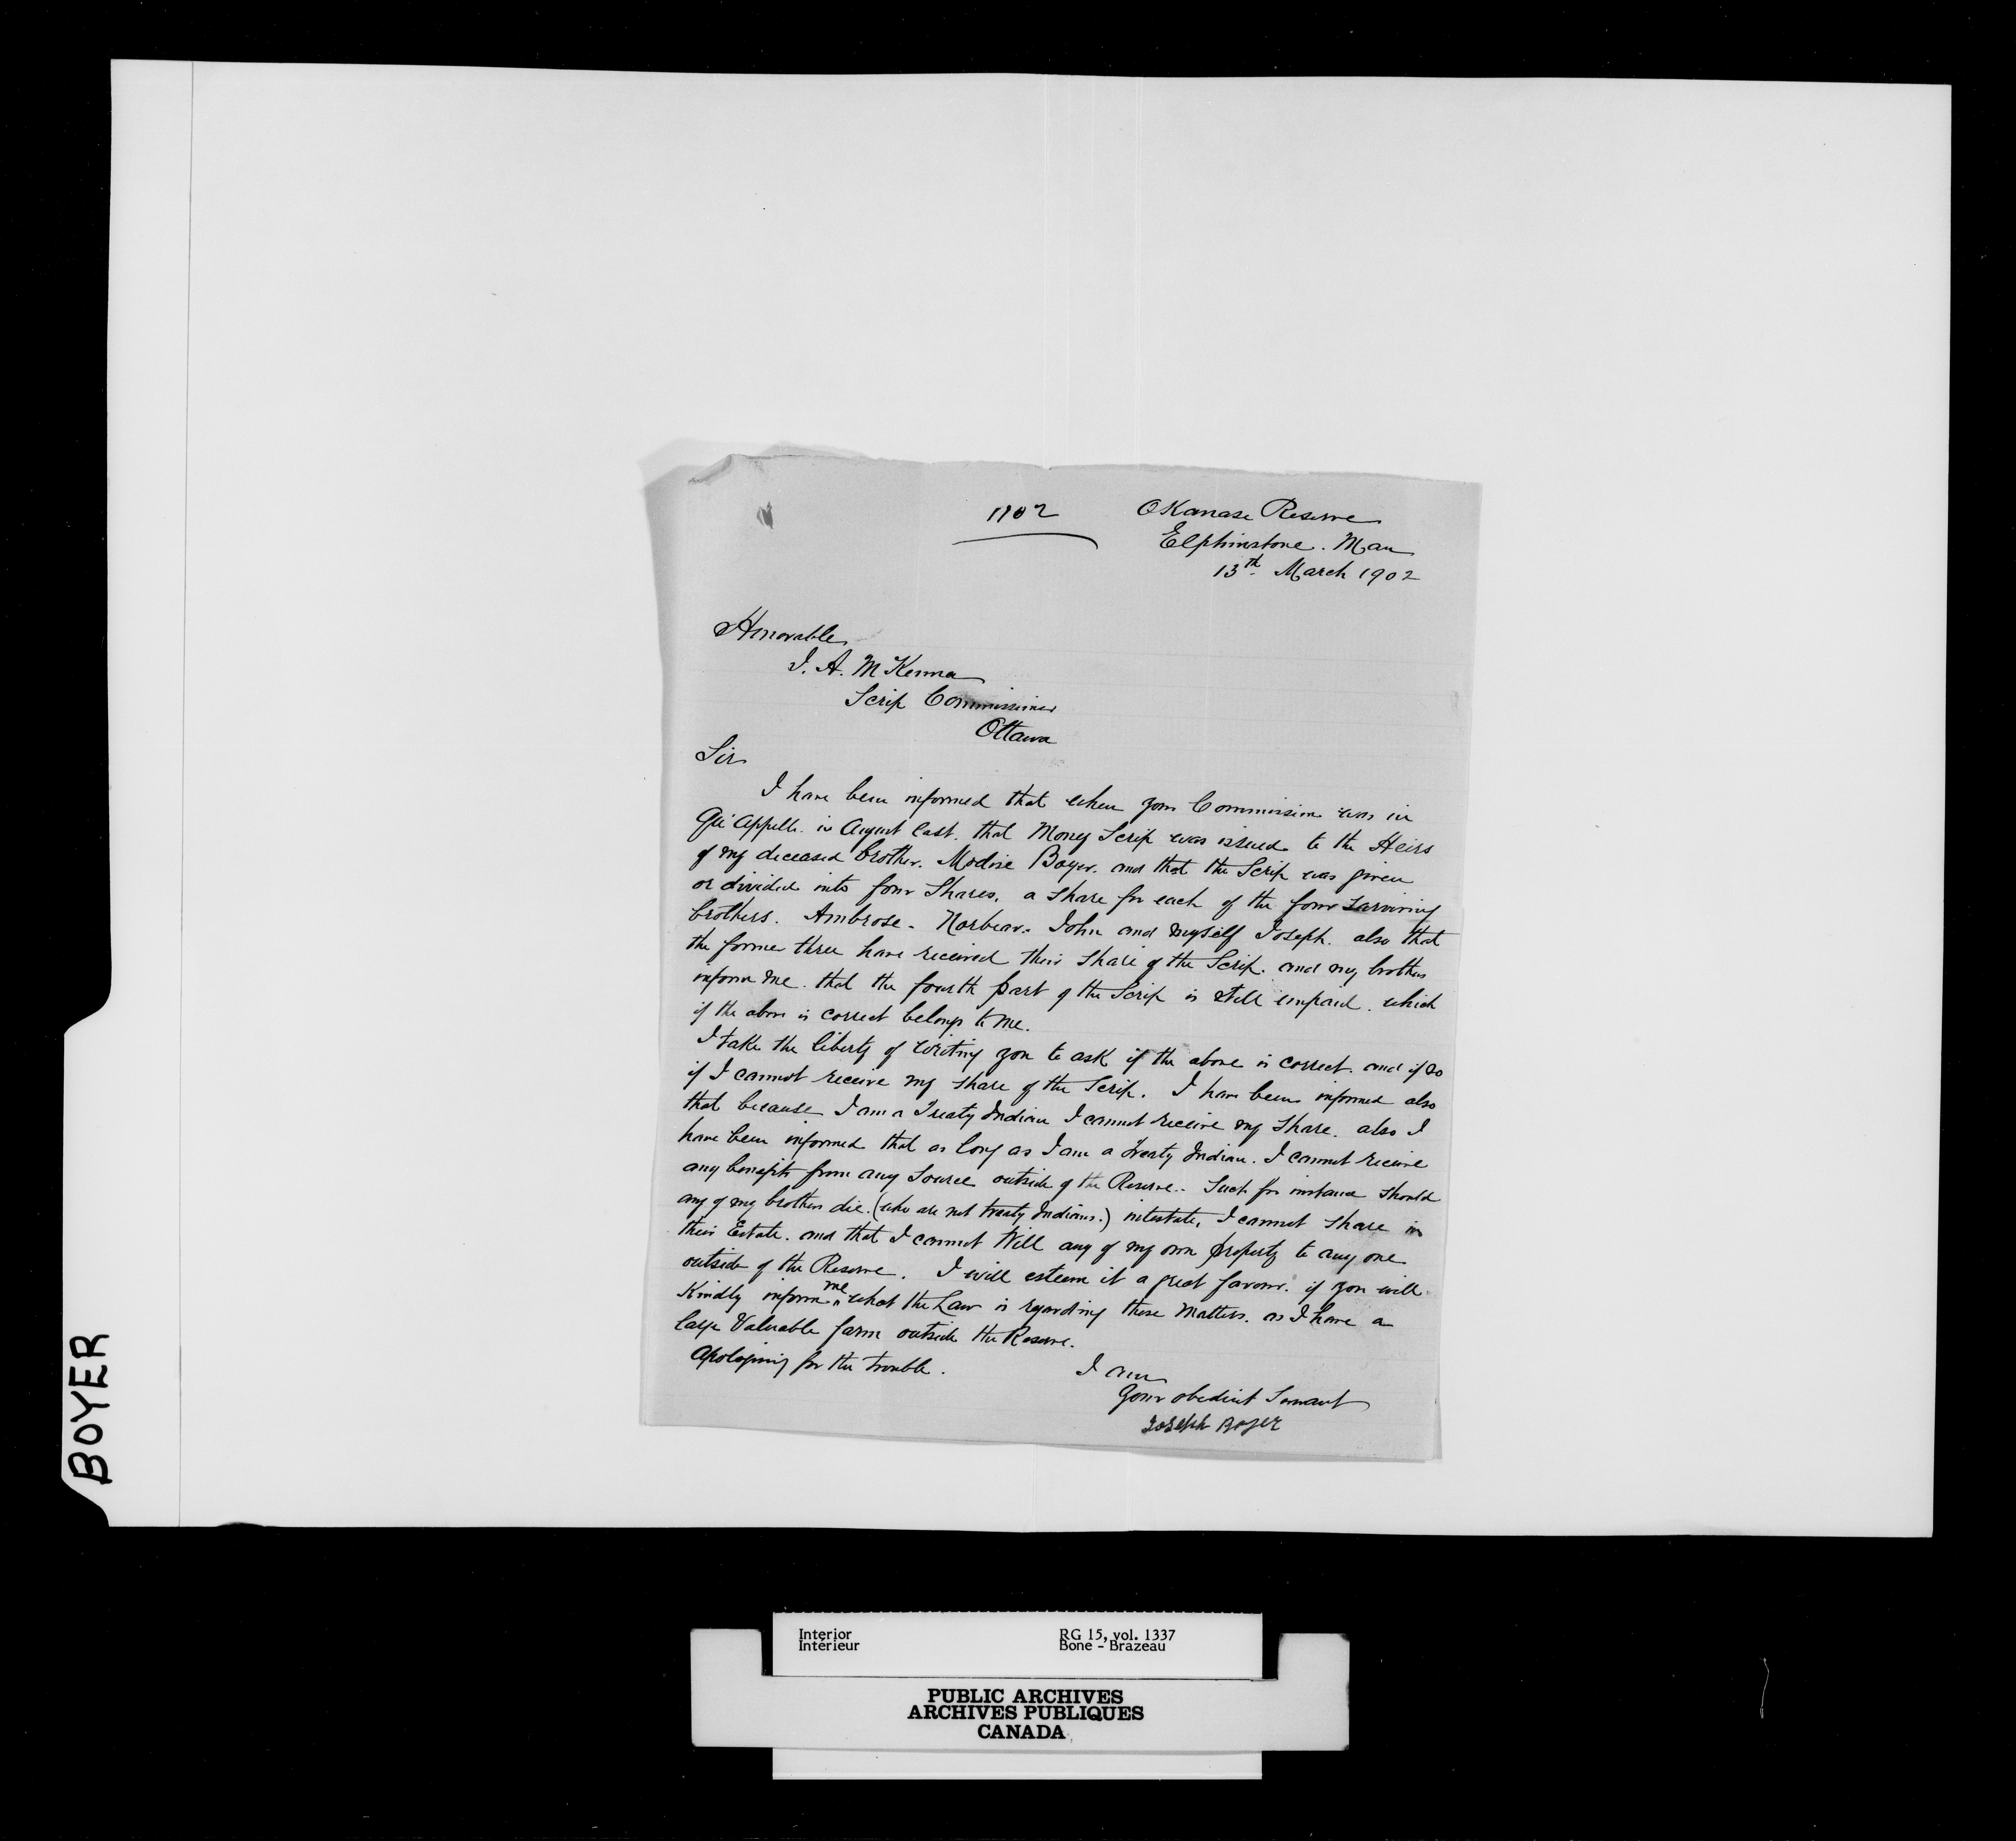 1902
OKanase Reserve
Elphinstone. Man
13th. March 1902
Honorable
J. A. McKenna
Scrip Commissioner
Ottawa
Sir
I have been informed that when your Commission was in
Qu'Appelle. in August last. that Money Scrip was issued to the Heirs
of my deceased brother. Modise Boyer. and that the Scrip was given
or divided into four Shares, a share for each of the four surviving
brothers. Ambrose. Norbear. John and myself Joseph. also that
the former three have received their share of the Scrip. and my brothers
inform me. that the fourth part of the Scrip is still unpaid. which
if the above is correct belongs to me.
I take the liberty of writing you to ask if the above is correct. and if so
if I cannot receive my share of the Scrip. I have been informed also
that because I am a Treaty Indian I cannot receive my share. also I
have been informed that as long as I am a Treaty Indian. I cannot receive
any benefits from any source outside of the Reserve.. Such for instance should
any of my brothers die. (who are not treaty Indians.) intestate, I cannot share in
their Estate. and that I cannot Will any of my own property to any one
outside of the Reserve. I will esteem it a great favour. if you will
Kindly inform me what the Law is regarding these matters. as I have a
large Valuable farm outside the Reserve.
Apologising for the trouble.
I am
Your obedient Servant
Joseph Boyer
BOYER
Interior
Intérieur
RG 15, vol. 1337
Bone - Brazeau
PUBLIC ARCHIVES
ARCHIVES PUBLIQUES
CANADA